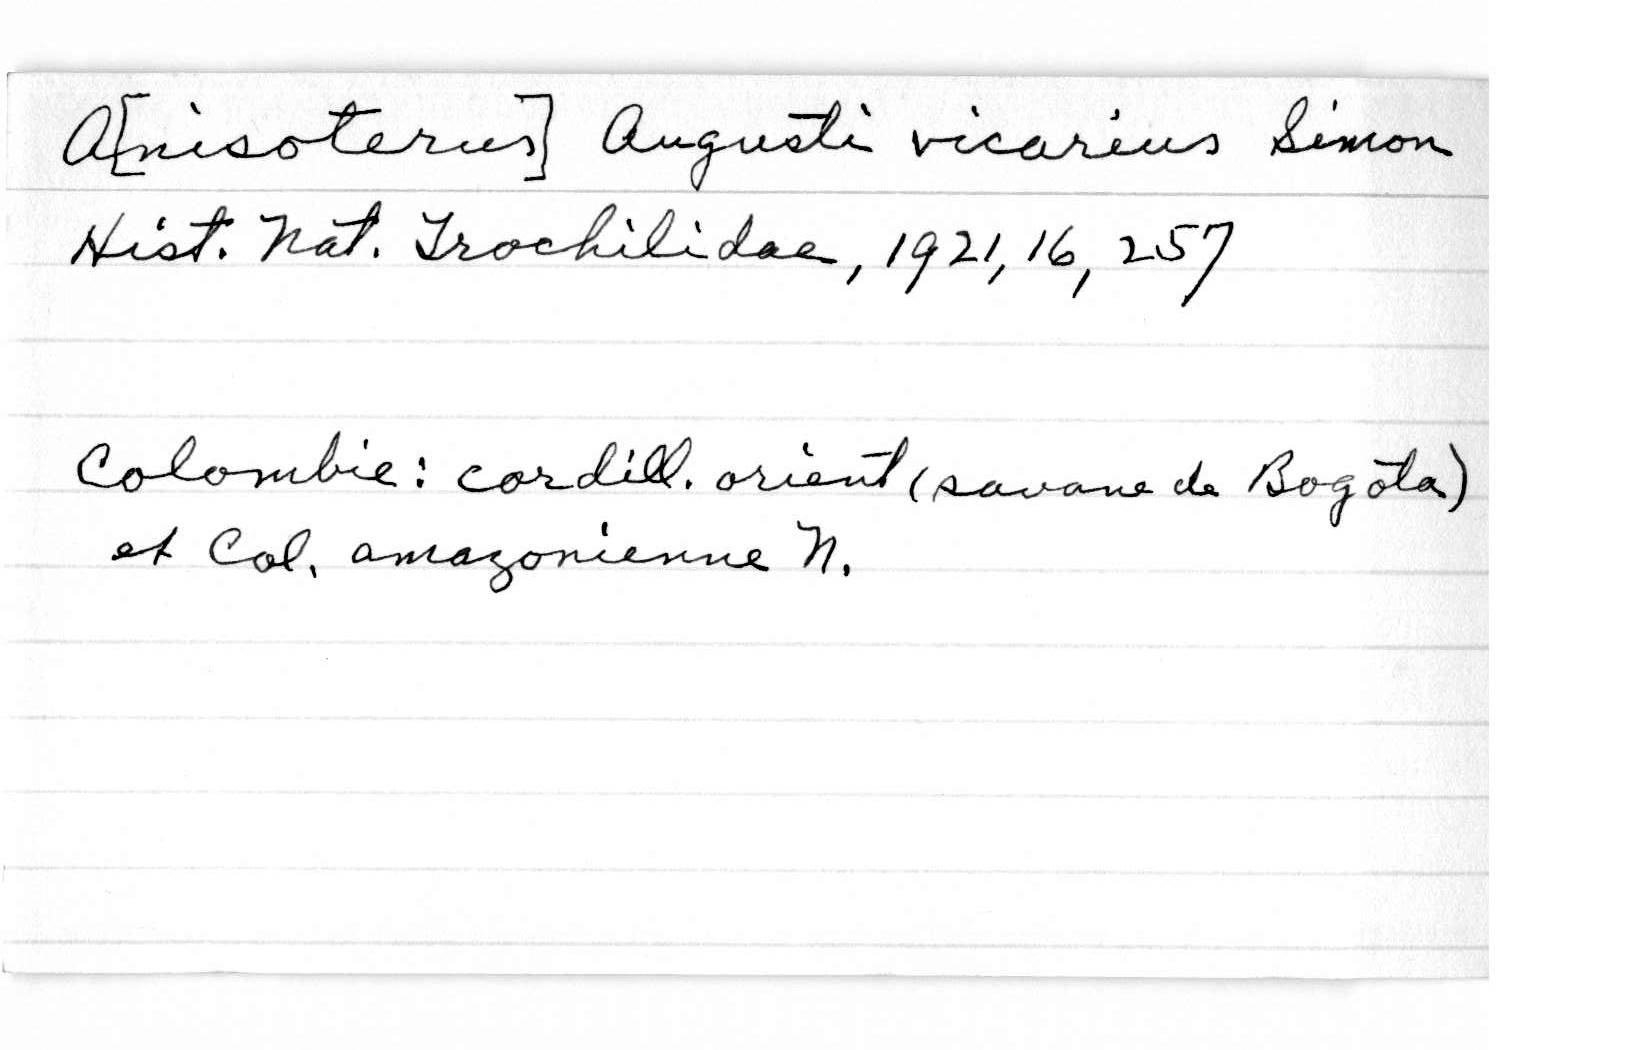 A[nisoterus] Augusti vicarius Simon
Hist. Nat. Trochilidae, 1921, 16, 257
Colombie: cordill. orient (savane de Bogota)
et Col. amazonienne N.